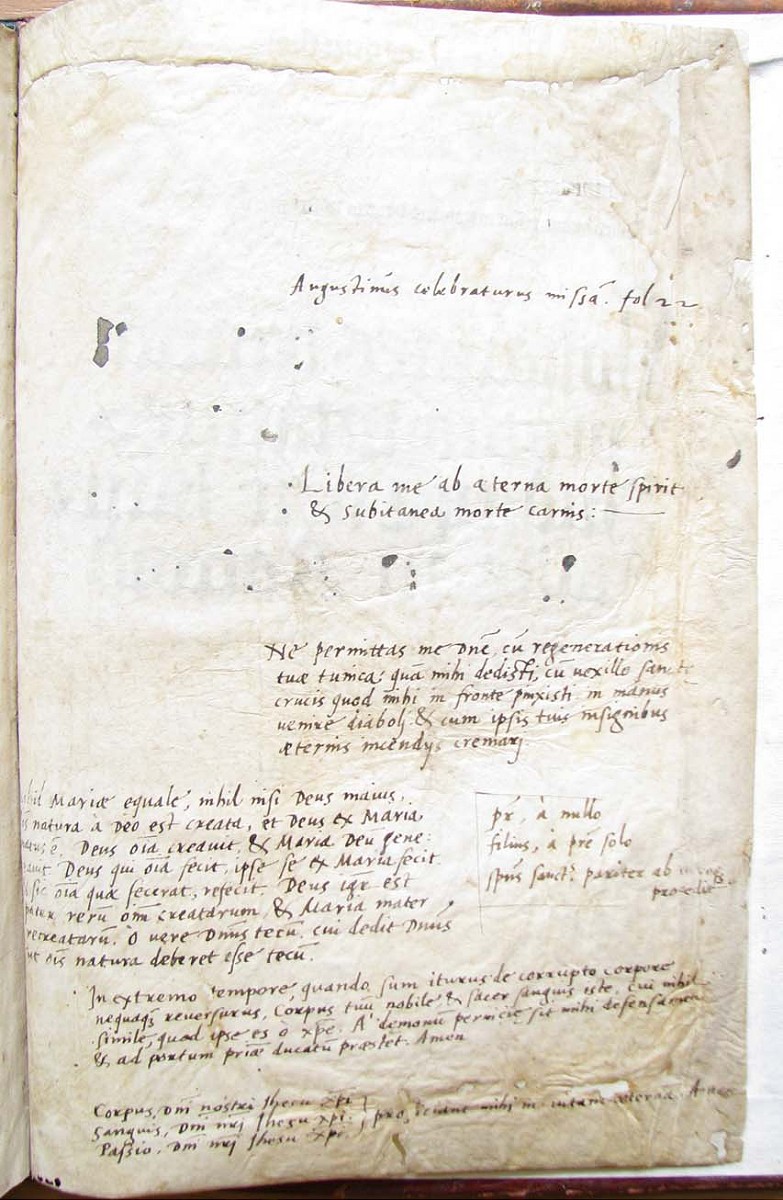 Augustinus celebraturus missā. fol 22
Libera me ab æterna morte spirit
& subitanea morte carnis:
Ne permittas me Dnē, cū regenerationis
tuæ tunica, quā mihi dedisti, cū vexillo sancte
crucis quod mihi in fronte pinxisti in manus
venire diaboli & cum ipsis tuis insignibus
æternis incendijs cremarj
nihil Mariæ equale, nihil nisi Deus maius.
natura à Deo est creata, et Deus ex Maria
natus ē. Deus oīa creavit, & Maria Deū gene:
ravit. Deus qui oīa fecit, ipse se ex Maria fecit
sic oīa quæ fecerat, refecit. Deus igr est
pater rerū oīm creatarum, & Maria mater
recreatarū. O vere Dnūs tecū. cui dedit Dnūs
ut oīs natura deberet esse tecū.
pr̄, à nullo
filius, à prē solo
spūs sanct9 pariter ab
procedit
In extremo tempore, quando sum iturus de corrupto corpore
nequaq̄ reversurus, Corpus tuū nobile & sacer sanguis iste, cui nihil
simile, quod ipse es ò xpe. A demonū pernicie sit mihi defensamen
& ad portum priæ ducatū præstet. Amen
Corpus, Dnī nostri Jhesu Xpi
Sanguis, Dnī nrj Jhesu Xpi
Passio, Dnī nrj Jhesu Xpi
mihi in vitam æternā. Amen